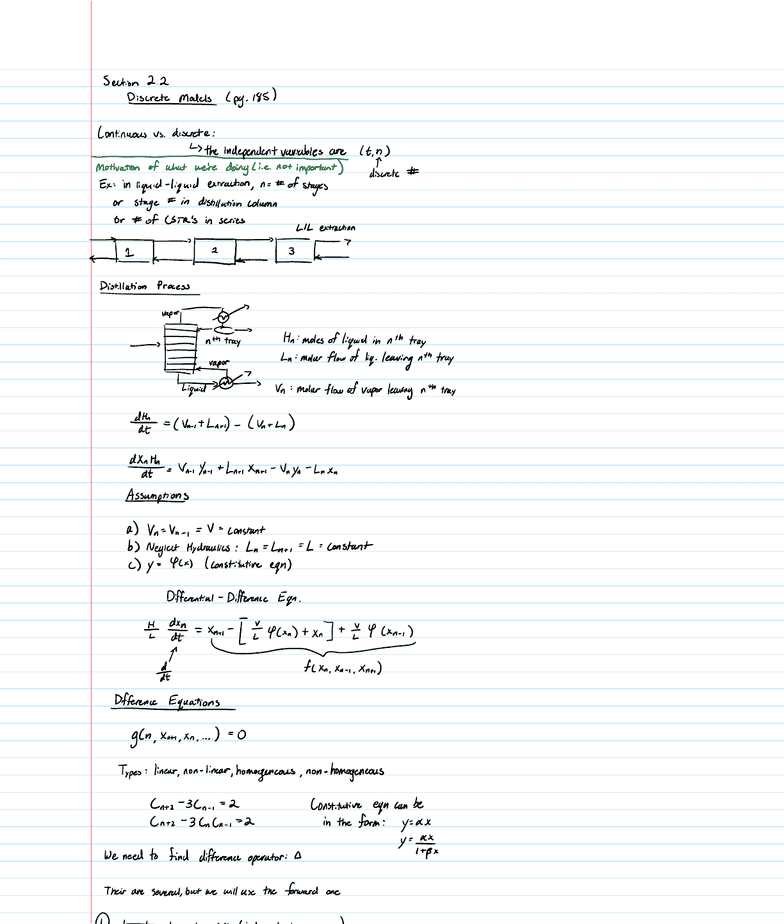 Section 2.2
Discrete Models (pg. 185)
Continuous vs. discrete:
↳ the independent variables are (t,n)
discrete #
Motivation of what we're doing (i.e. not important)
Ex: in liquid-liquid extraction, n = # of stages
or stage # in distillation column
or # of CSTR's in series
L/L extraction
1 2 3
Distillation Process
vapor
nth tray
vapor
Liquid
Hn: moles of liquid in nth tray
Ln: molar flow of liq. leaving nth tray
Vn: molar flow of vapor leaving nth tray
dHn/dt = (Vn-1 + Ln+1) - (Vn + Ln)
dXnHn/dt = Vn-1 yn-1 + Ln+1 xn+1 - Vn yn - Ln xn
Assumptions
a) Vn = Vn-1 = V = constant
b) Neglect Hydraulics: Ln = Ln+1 = L = constant
c) y = φ(x) (constitutive eqn)
Differential-Difference Eqn.
H/L dxn/dt = xn+1 - [V/L φ(xn) + xn] + V/L φ(xn-1)
d/dt
f(xn, xn-1, xn+1)
Difference Equations
g(n, xn+1, xn, ...) = 0
Types: linear, non-linear, homogeneous, non-homogeneous
Cn+2 - 3Cn-1 = 2
Cn+2 - 3CnCn-1 = 2
Constitutive eqn can be
in the form: y = αx
y = αx/1+βx
We need to find difference operator: Δ
Their are several, but we will use the forward one